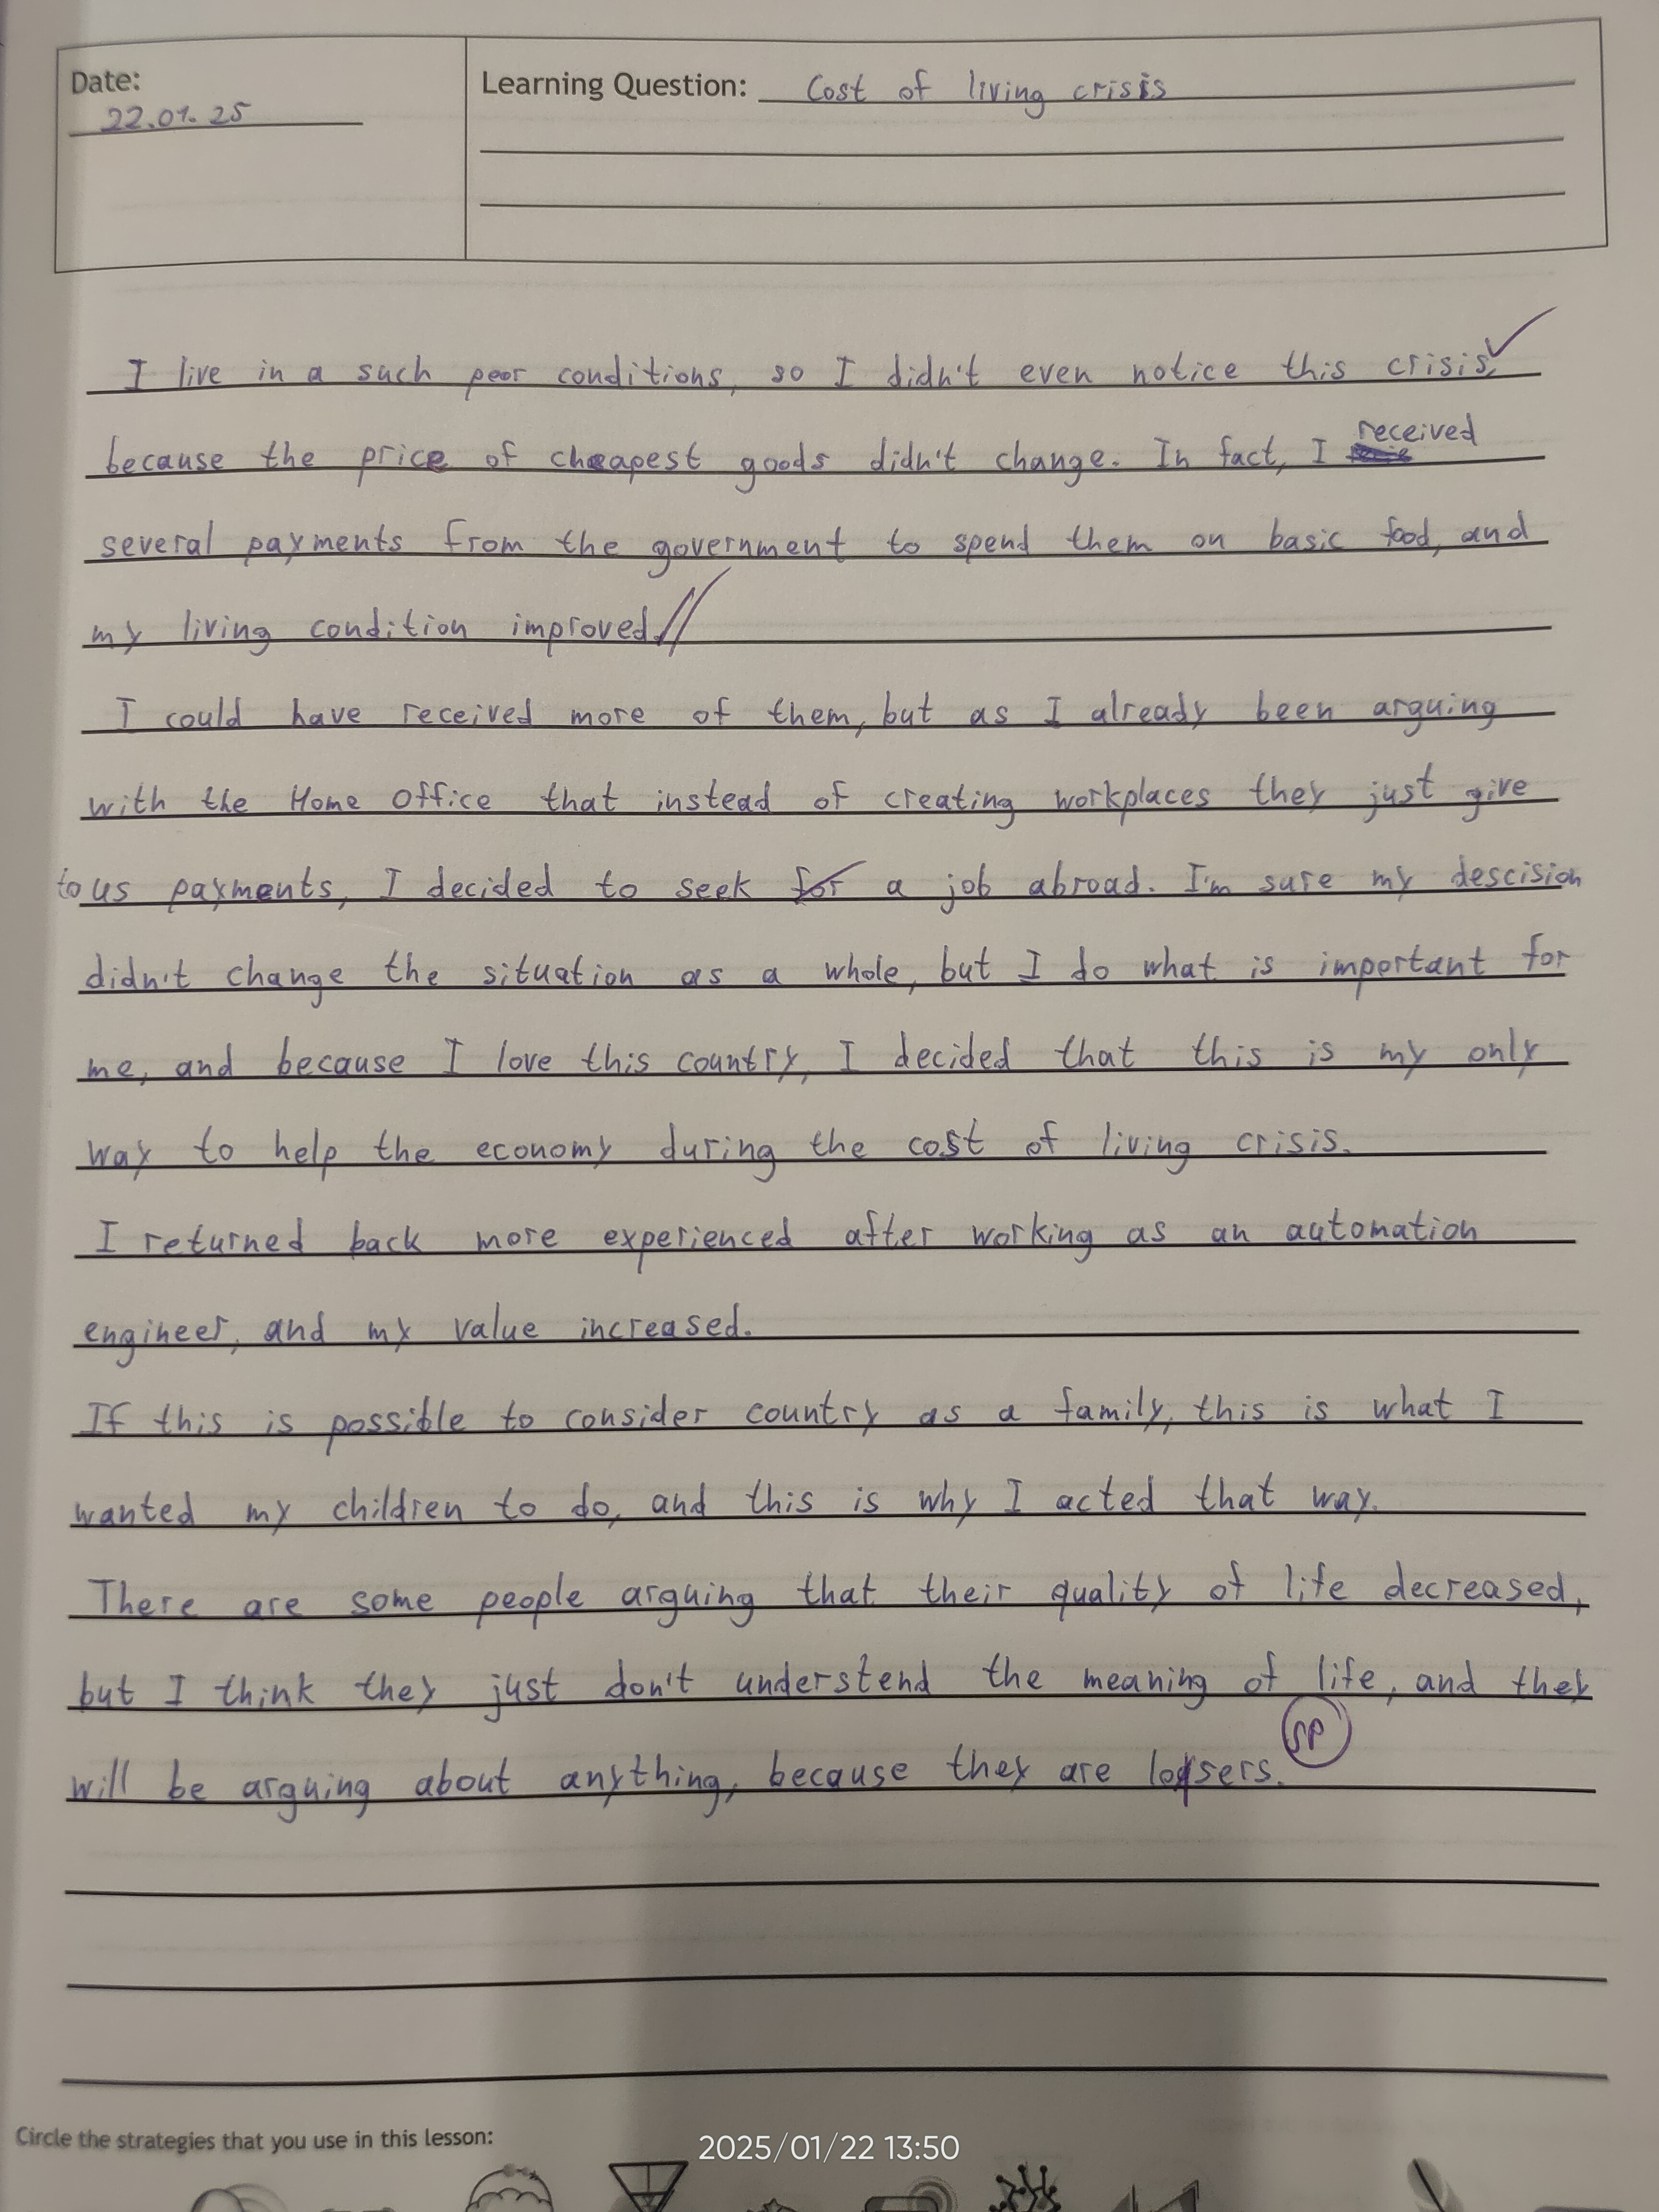 Date:
22.01.25
Learning Question: Cost of living crisis
I live in a such peor conditions, so I didn't even notice this crisis,
because the price of cheapest goods didn't change. In fact, I received
several payments from the government to spend them on basic food, and
my living condition improved.//
I could have received more of them, but as I already been arguing
with the Home Office that instead of creating workplaces they just give
to us payments, I decided to seek for a job abroad. I'm sure my descision
didn't change the situation as a whole, but I do what is important for
me, and because I love this country, I decided that this is my only
way to help the economy during the cost of living crisis.
I returned back more experienced after working as an automation
engineer, and my value increased.
If this is possible to consider country as a family, this is what I
wanted my children to do, and this is why I acted that way.
There are some people arguing that their quality of life decreased,
but I think they just don't understend the meaning of life, and they
SP
will be arguing about anything, because they are loosers.
Circle the strategies that you use in this lesson:
2025/01/22 13:50